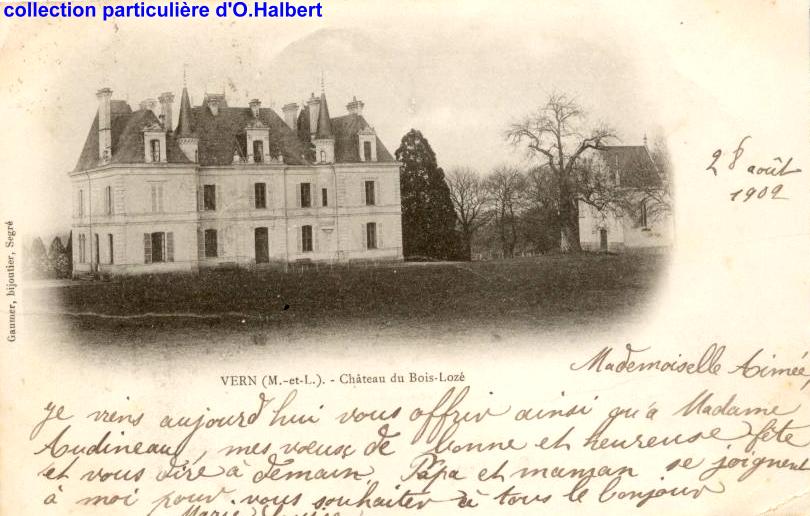 collection particulière d'O.Halbert
28 août
1902
Gaumer, bijoutier, Segré
VERN (M.-et-L.). - Château du Bois-Lozé
Mademoiselle Aimée,
Je viens aujourd'hui vous offrir ainsi qu'à Madame
Audineau, mes vœux de bonne et heureuse fête
et vous dire à demain Papa et maman se joignent
à moi pour vous souhaiter à tous le bonjour
Marie Louise